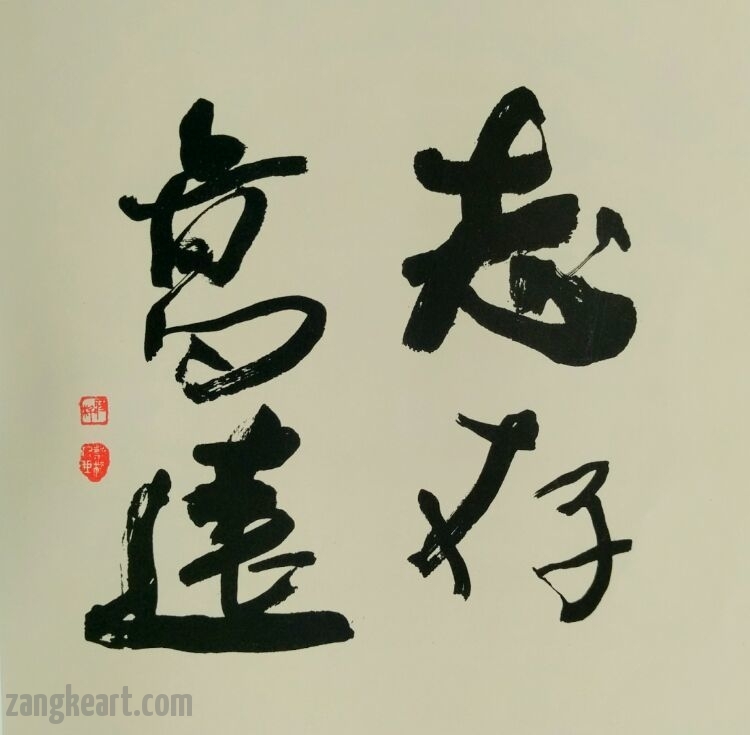 志存
高遠
zangkeart.com